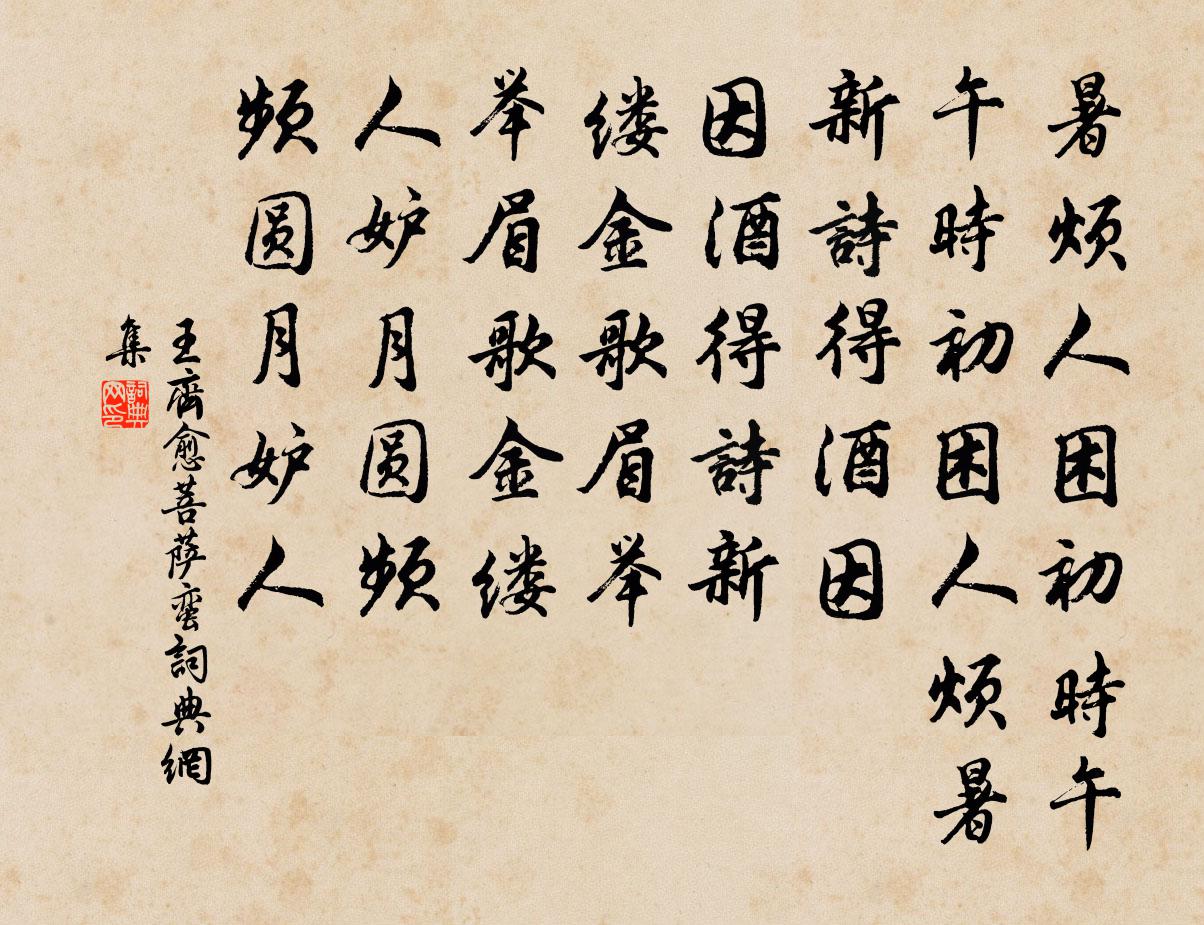 暑烦人困初時午
午時初困人烦暑
新詩得酒因
因酒得詩新
缕金歌眉举
举眉歌金缕
人妒月圆频
频圆月妒人
王齊愈菩萨蛮詞典網
集
詞典网印